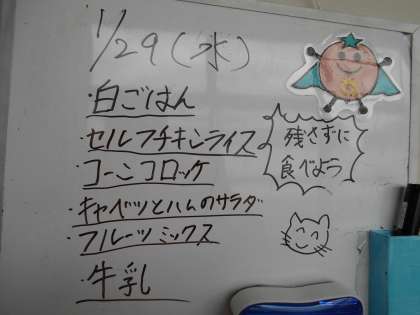 1/29(水)
・白ごはん
・セルフチキンライス
・コーンコロッケ
・キャベツとハムのサラダ
・フルーツミックス
・牛乳
残さずに
食べよう